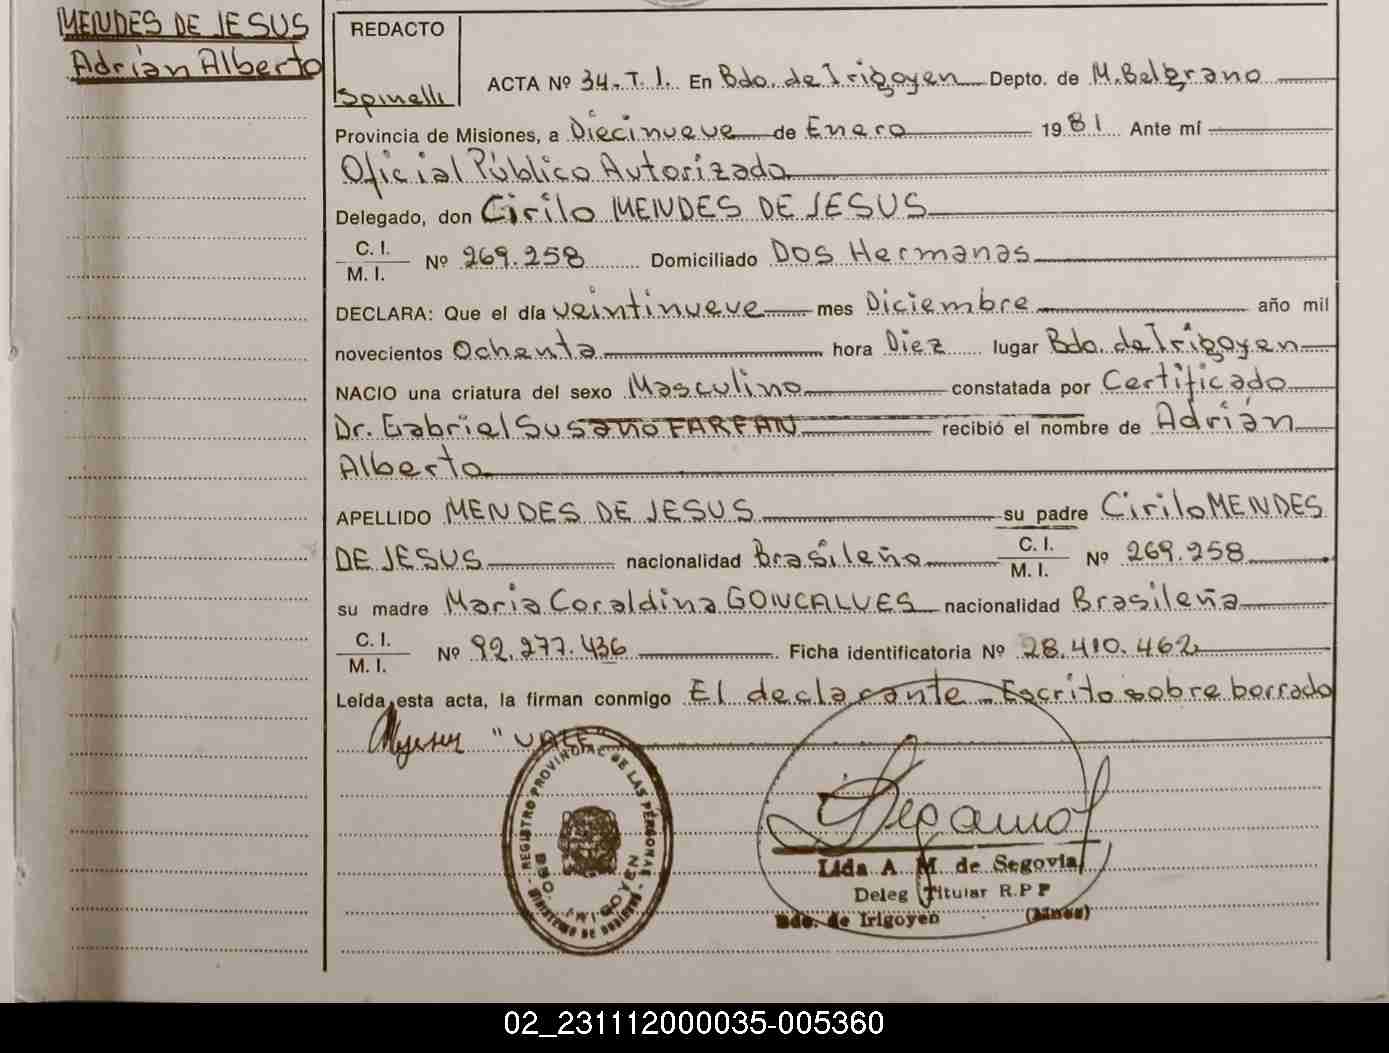 MENDES DE JESUS
Adrián Alberto
REDACTO
Spinelli
ACTA Nº 34. T. I. En Bdo. de Irigoyen Depto. de M. Belgrano
Provincia de Misiones, a Diecinueve de Enero 1981 Ante mí
Oficial Público Autorizado
Delegado, don Cirilo MENDES DE JESUS
C. I.
M. I. Nº 269.258 Domiciliado Dos Hermanas
DECLARA: Que el día veintinueve mes Diciembre año mil
novecientos Ochenta hora Diez lugar Bdo. de Irigoyen
NACIO una criatura del sexo Masculino constatada por Certificado
Dr. Gabriel Susano FARFAN recibió el nombre de Adrián
Alberto
APELLIDO MENDES DE JESUS su padre Cirilo MENDES
DE JESUS nacionalidad Brasileño C. I.
M. I. Nº 269.258
su madre Maria Coraldina GONCALVES nacionalidad Brasileña
C. I.
M. I. Nº 92.277.436 Ficha identificatoria Nº 28.410.462
Leída esta acta, la firman conmigo El declarante - Escrito sobre borrado
"VALE"
REGISTRO PROVINCIAL DE LAS PERSONAS
BDO. IRIGOYEN
MINISTERIO DE GOBIERNO
Lida A. M. de Segovia
Deleg Titular R.P.P
Bdo. de Irigoyen (Mnes)
02_231112000035-005360